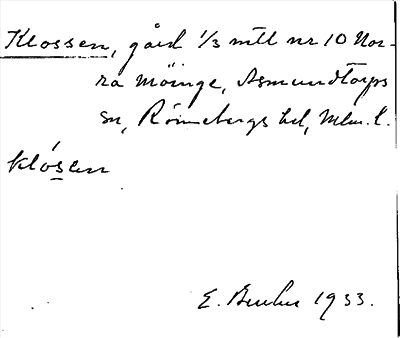 Klossen, gård 1/3 mtl nr 10 Nor-
ra Möinge, Asmundtorps
sn, Rönnebergs hd, Mlm. l.
klósen
E. 1933.